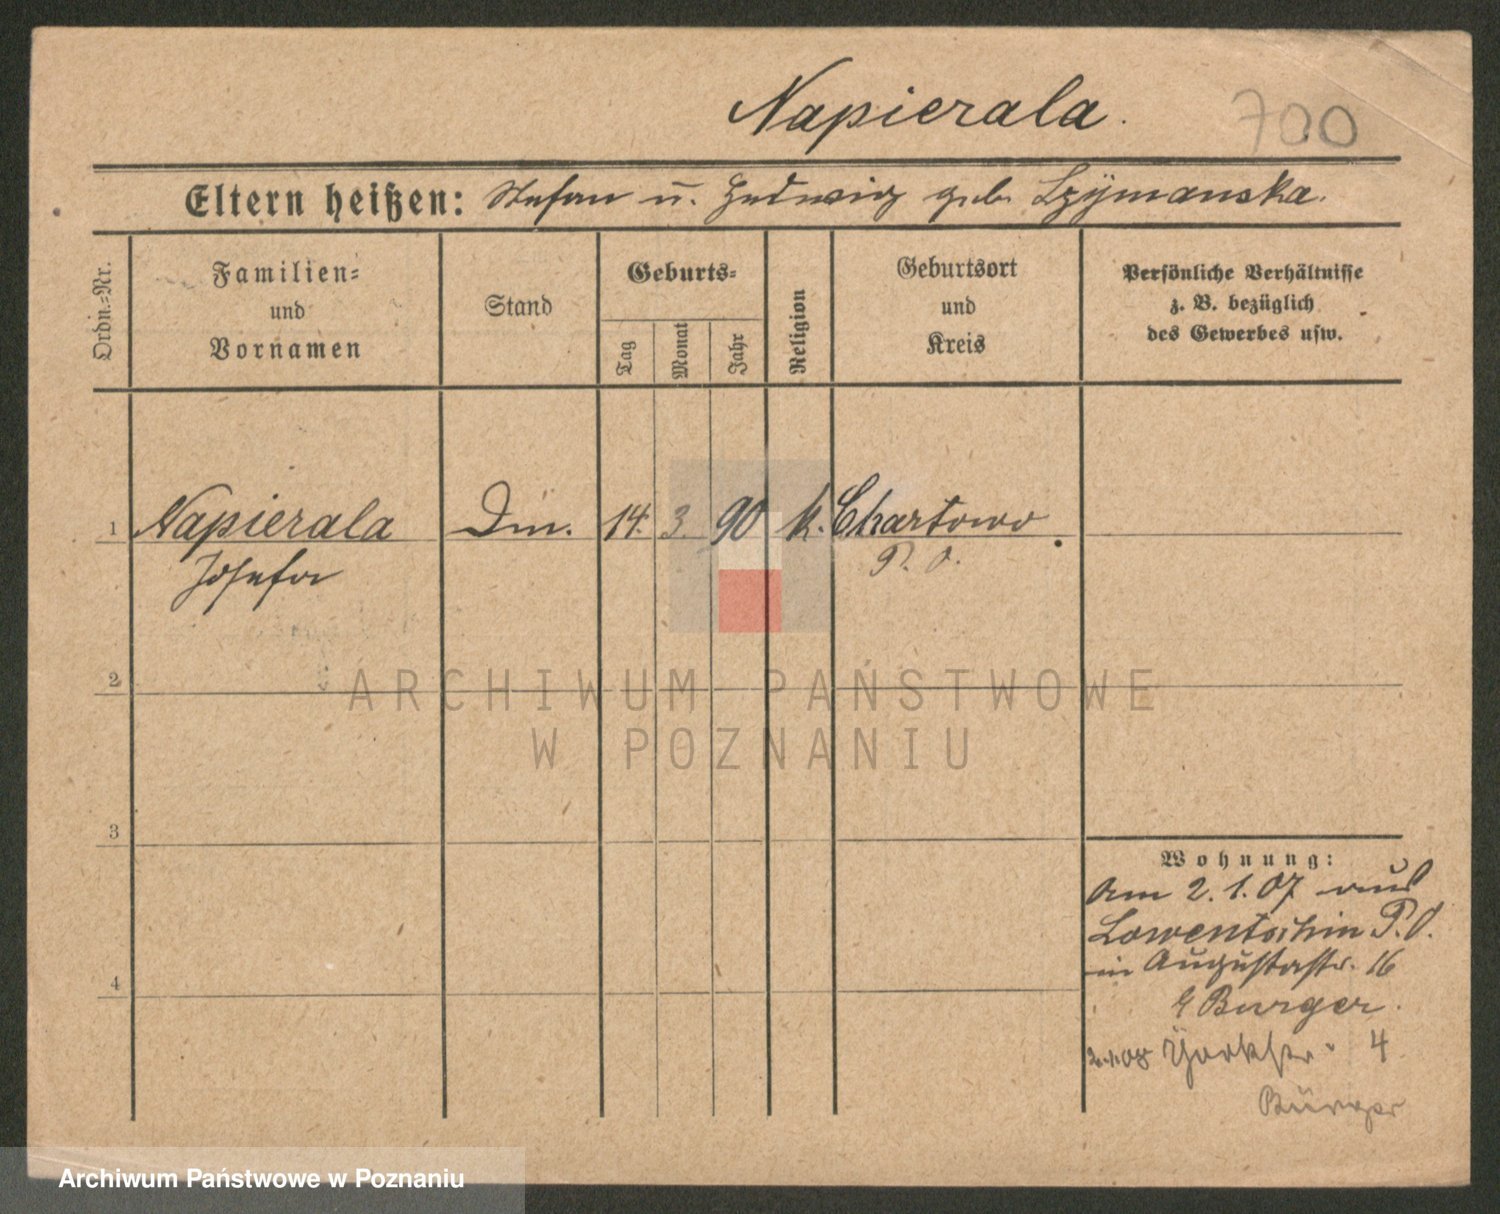 Napierala.
700
Eltern heißen: Stefan u. Hedwig geb. Szymanska.
Ordn.=Nr.
Familien=
und
Vornamen
Stand
Geburts=
Tag
Monat
Jahr
Religion
Geburtsort
und
Kreis
Persönliche Verhältnisse
z. B. bezüglich
des Gewerbes usw.
1 Napierala Dm. 14. 3. 90 k. Chartowo
Josefa P. O.
2
3
4
ARCHIWUM PAŃSTWOWE
W POZNANIU
Wohnung:
Am 2.1.07 aus
Lowentschin P.O.
in Augustastr. 16
b Burger.
2.1.08 Yorkstr. 4
Bürger
Archiwum Państwowe w Poznaniu